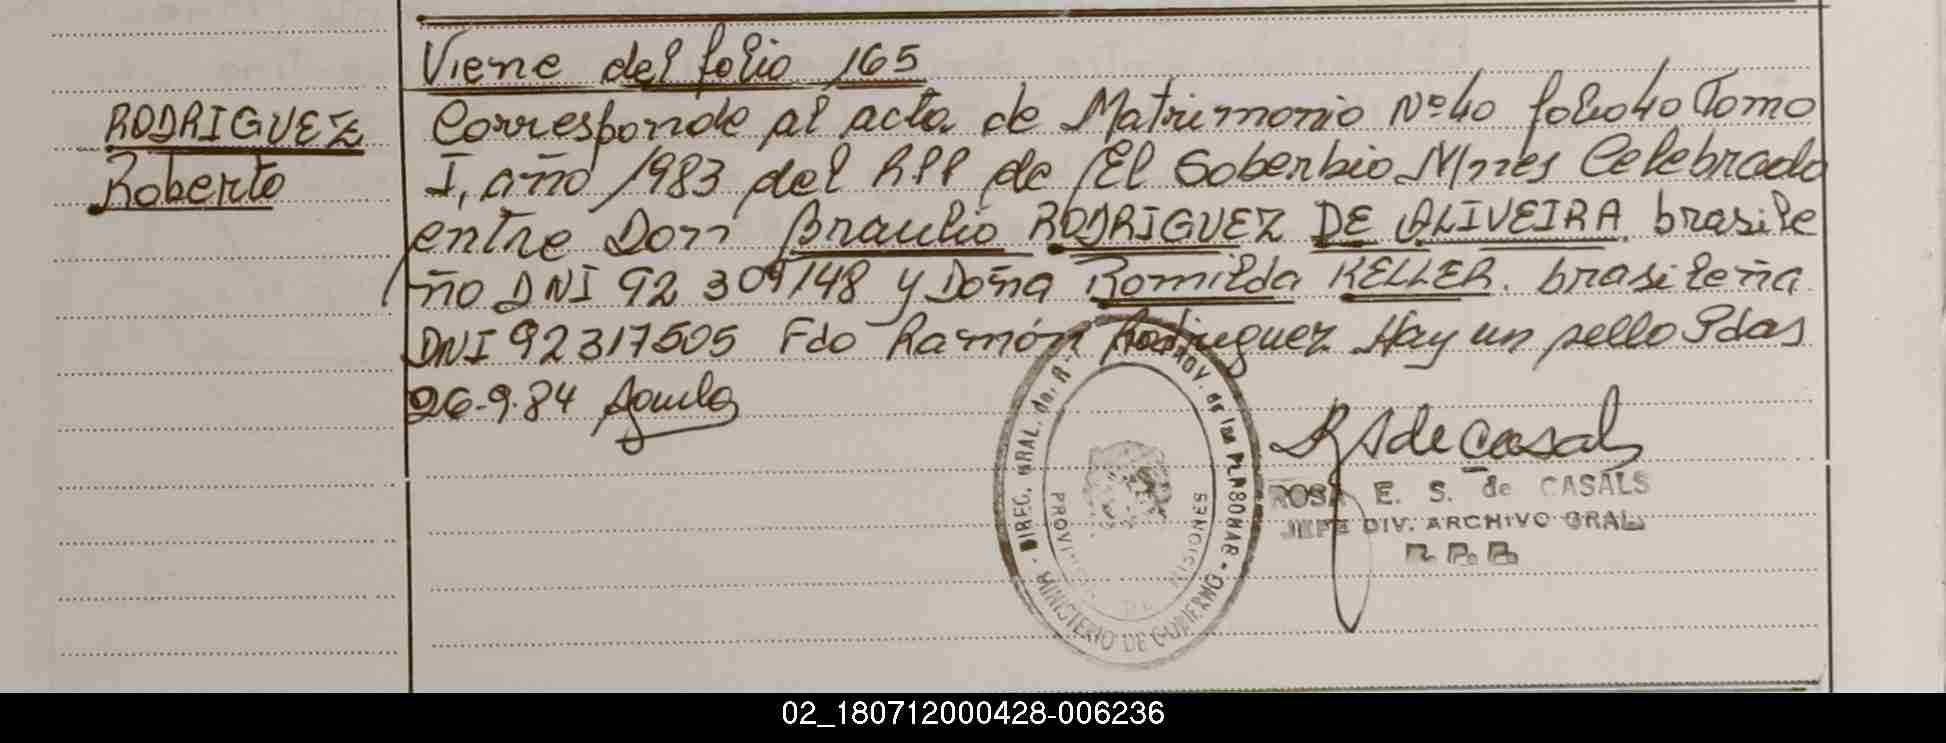 Viene del folio 165
RODRIGUEZ
Roberto
Corresponde al acta de Matrimonio Nº 40 folio 40 Tomo
I, año 1983 del RPP de El Soberbio Mnes Celebrado
entre Don Braulio RODRIGUEZ DE OLIVEIRA brasile
ño DNI 92 309148 y Doña Romilda KELLER. brasileña
DNI 92317505 Fdo Ramón Rodriguez Hay un sello Pdas
26-9-84
DIREC. GRAL. del R. PROV. de las PERSONAS
PROVINCIA DE MISIONES
MINISTERIO DE GOBIERNO
R S de Casals
ROSA E. S. de CASALS
JEFE DIV. ARCHIVO GRAL
R. P. P.
02_180712000428-006236